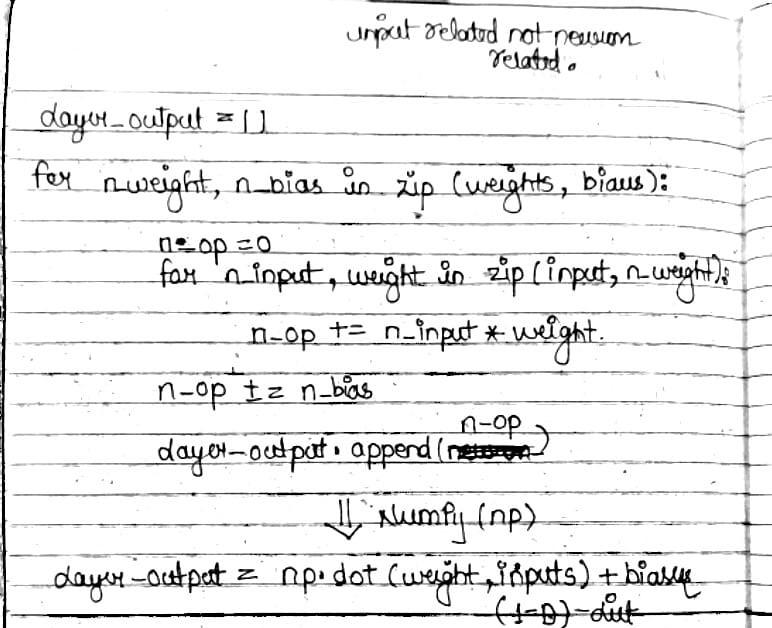 input related not neuron
related.
layer_output = []
for nweight, n_bias in zip (weights, biases):
n_op = 0
for n_input, weight in zip (input, n_weight):
n_op += n_input * weight.
n_op += n_bias
layer_output. append (n_op)
⇓ Numpy (np)
layer_output = np.dot (weight, inputs) + biases
(1-D)